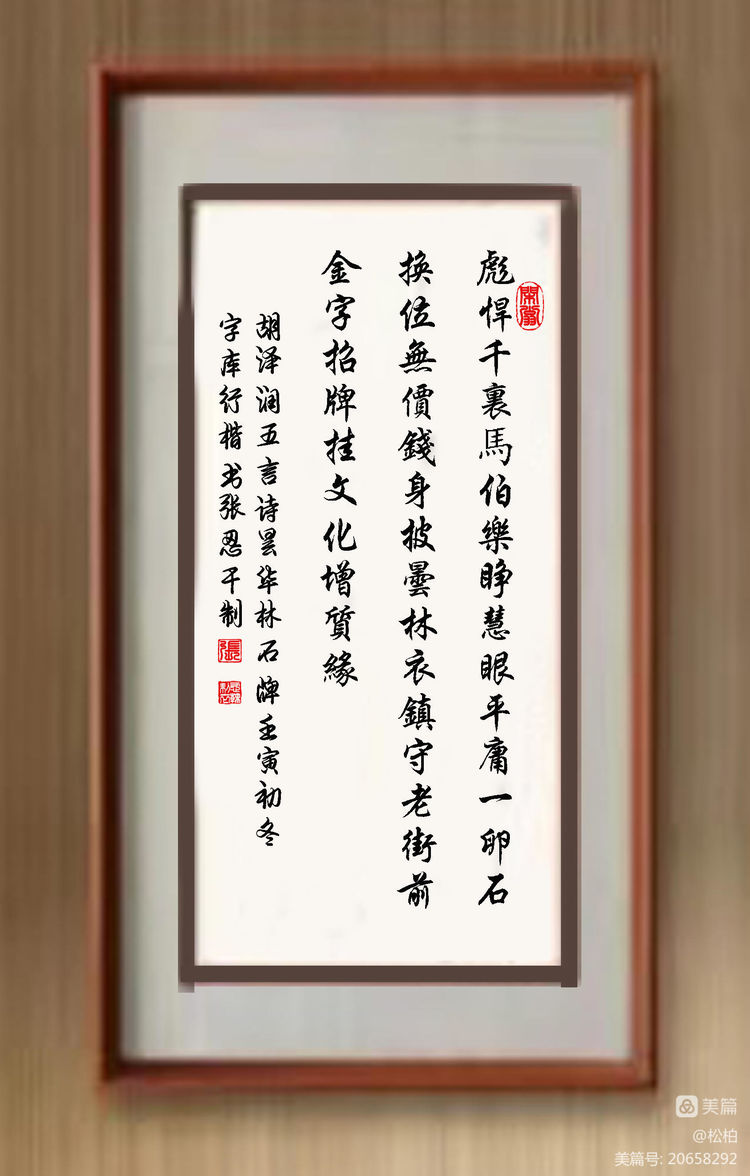 彪悍千裏馬伯樂睜慧眼平庸一卵石
換位無價錢身披曇林衣鎮守老街前
金字招牌挂文化增質緣
胡泽润五言诗昙华林石牌壬寅初冬
字库行楷书张忍千制
張
美篇
@松柏
美篇号: 20658292